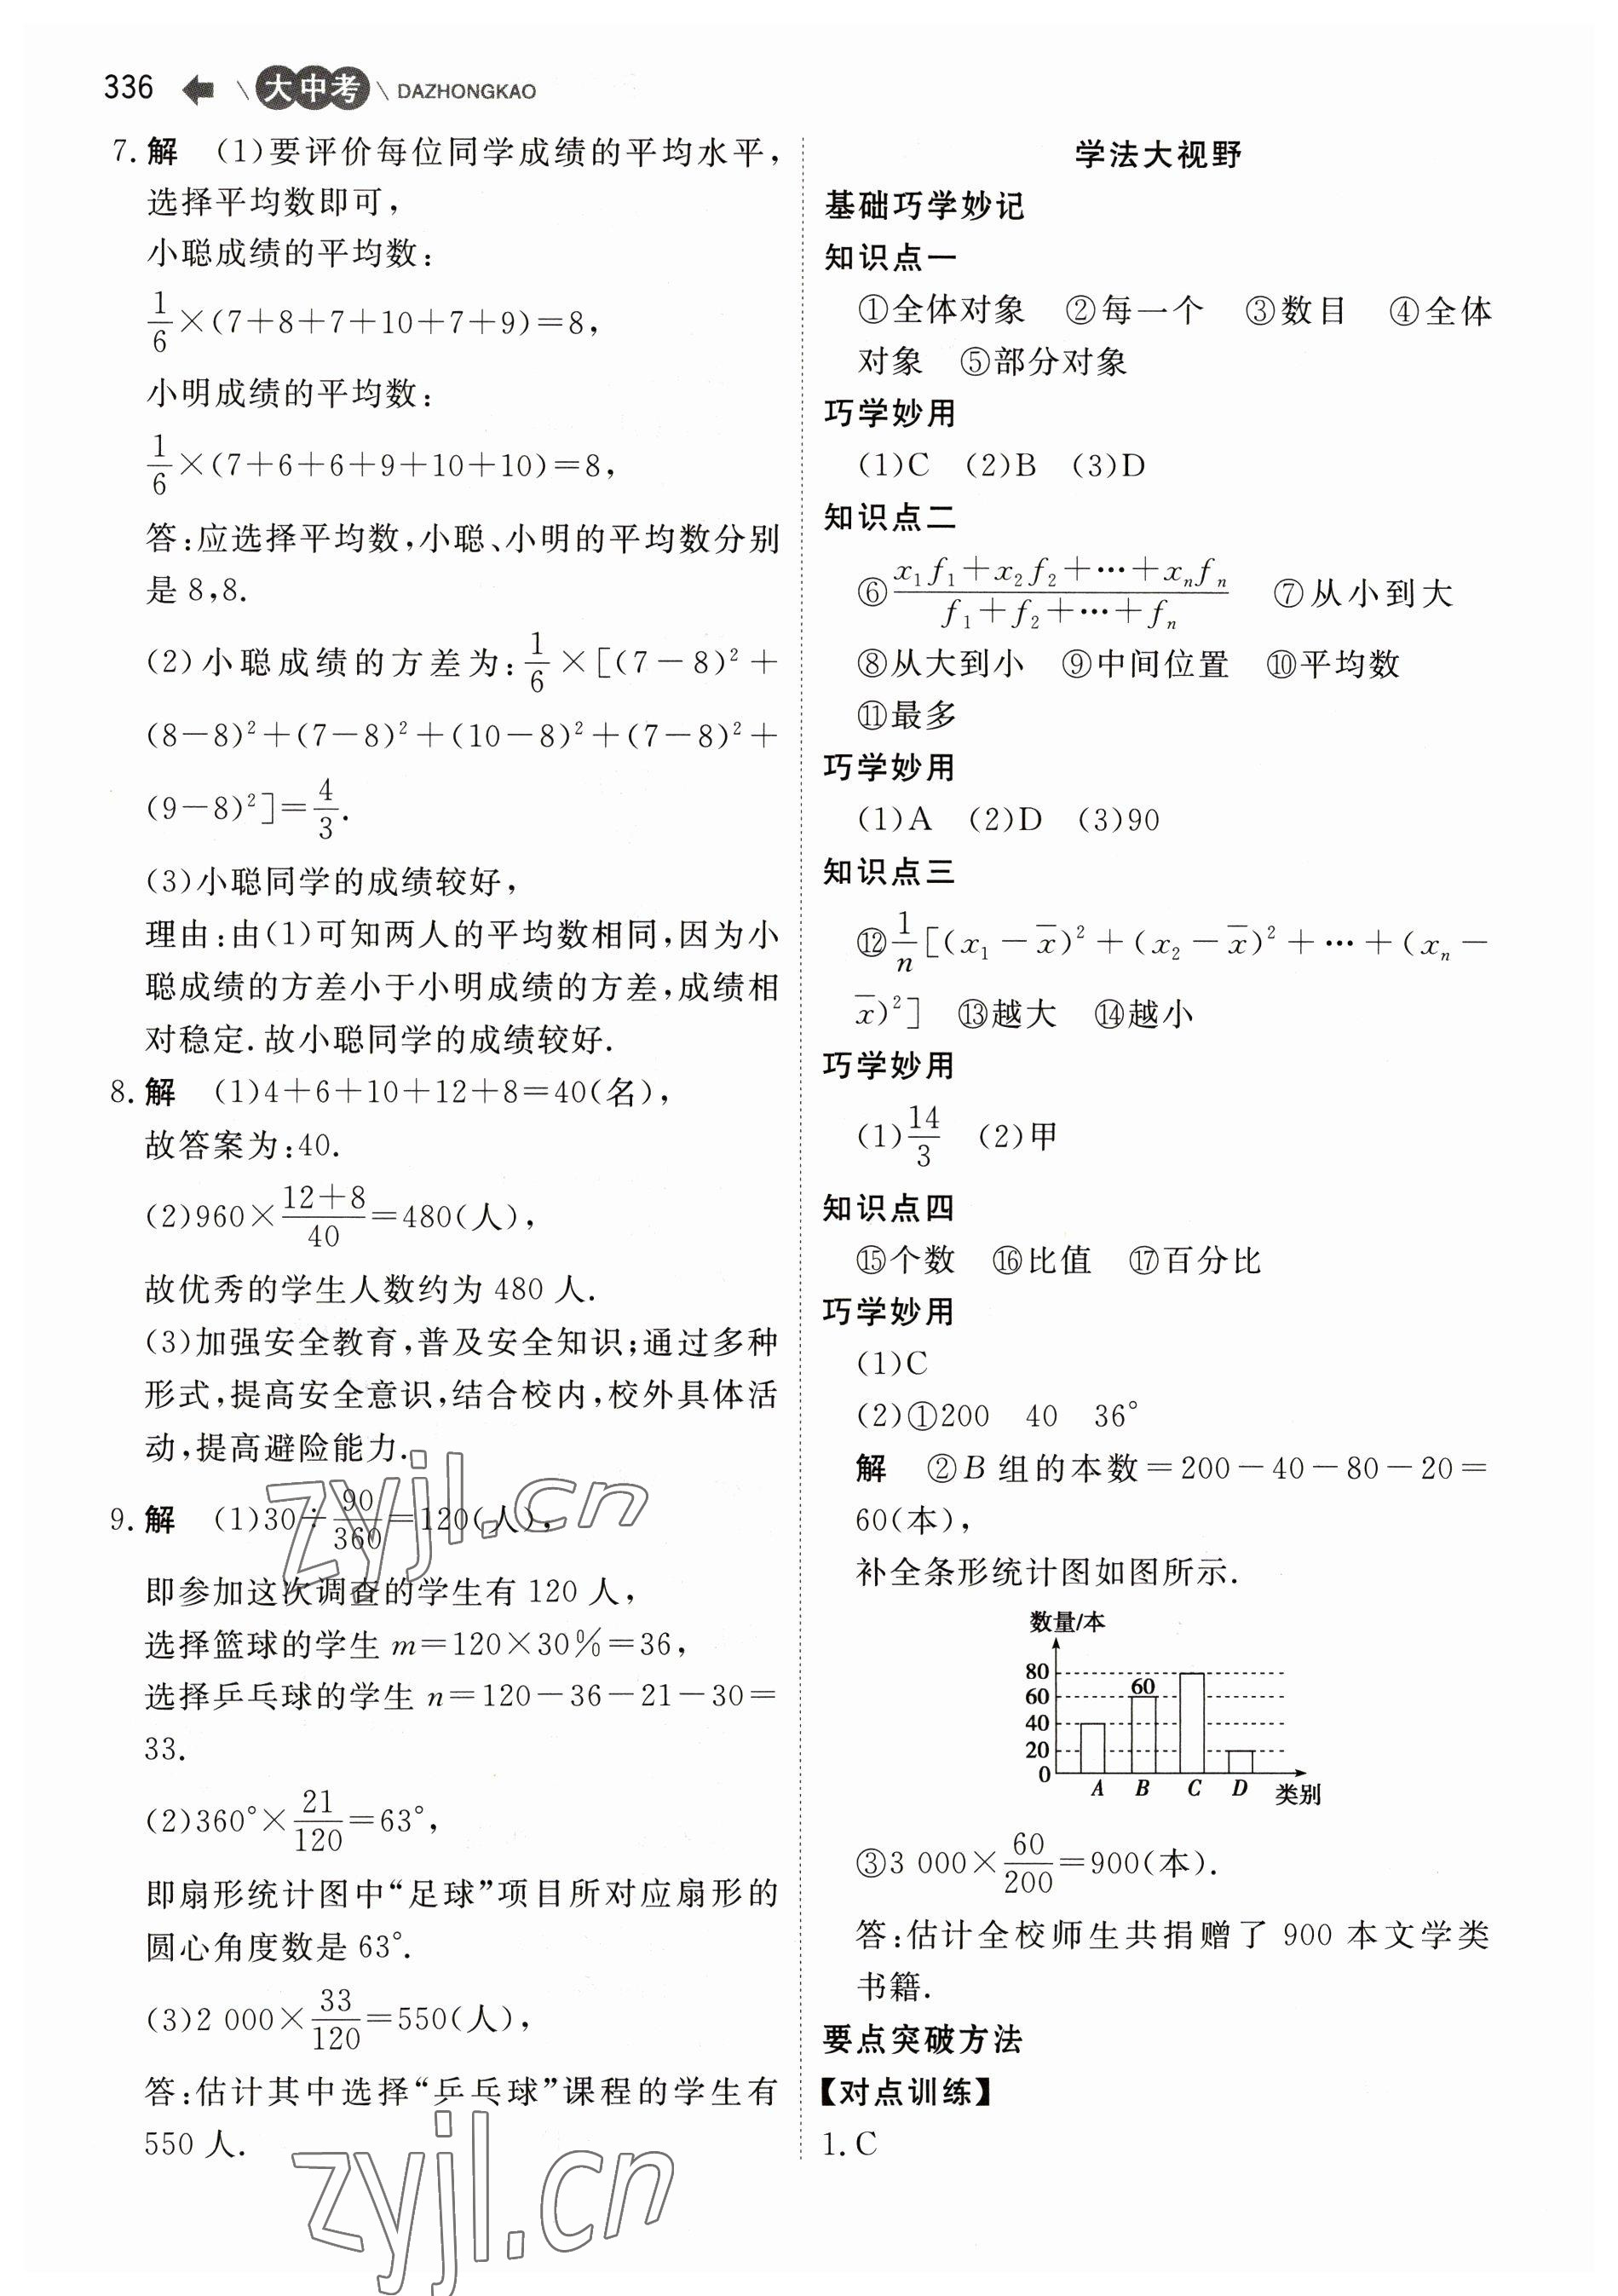 336 大中考 DAZHONGKAO
7. 解 (1)要评价每位同学成绩的平均水平,
选择平均数即可,
小聪成绩的平均数:
1/6×(7+8+7+10+7+9)=8,
小明成绩的平均数:
1/6×(7+6+6+9+10+10)=8,
答:应选择平均数,小聪、小明的平均数分别
是 8,8.
(2)小聪成绩的方差为:1/6×[(7-8)²+
(8-8)²+(7-8)²+(10-8)²+(7-8)²+
(9-8)²]=4/3.
(3)小聪同学的成绩较好,
理由:由(1)可知两人的平均数相同,因为小
聪成绩的方差小于小明成绩的方差,成绩相
对稳定.故小聪同学的成绩较好.
8. 解 (1)4+6+10+12+8=40(名),
故答案为:40.
(2)960×(12+8)/40=480(人),
故优秀的学生人数约为 480 人.
(3)加强安全教育,普及安全知识;通过多种
形式,提高安全意识,结合校内,校外具体活
动,提高避险能力.
9. 解 (1)30÷90/360=120(人),
即参加这次调查的学生有 120 人,
选择篮球的学生 m=120×30%=36,
选择乒乓球的学生 n=120-36-21-30=
33.
(2)360°×21/120=63°,
即扇形统计图中“足球”项目所对应扇形的
圆心角度数是 63°.
(3)2 000×33/120=550(人),
答:估计其中选择“乒乓球”课程的学生有
550 人.
zyjl.cn
zyjl.cn
学法大视野
基础巧学妙记
知识点一
①全体对象 ②每一个 ③数目 ④全体
对象 ⑤部分对象
巧学妙用
(1)C (2)B (3)D
知识点二
⑥(x₁f₁+x₂f₂+…+xₙfₙ)/(f₁+f₂+…+fₙ) ⑦从小到大
⑧从大到小 ⑨中间位置 ⑩平均数
⑪最多
巧学妙用
(1)A (2)D (3)90
知识点三
⑫1/n[(x₁-x̄)²+(x₂-x̄)²+…+(xₙ-
x̄)²] ⑬越大 ⑭越小
巧学妙用
(1)14/3 (2)甲
知识点四
⑮个数 ⑯比值 ⑰百分比
巧学妙用
(1)C
(2)①200 40 36°
解 ②B 组的本数=200-40-80-20=
60(本),
补全条形统计图如图所示.
数量/本
80
60 60
40
20
0
A B C D 类别
③3 000×60/200=900(本).
答:估计全校师生共捐赠了 900 本文学类
书籍.
要点突破方法
【对点训练】
1. C